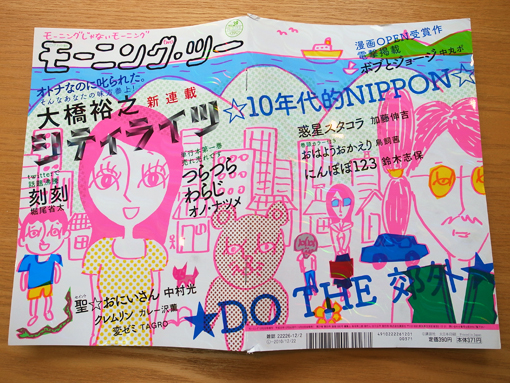 モーニングじゃないモーニング
モーニング・ツー
オトナなのに叱られた。
そんなあなたの味方参上!
大橋裕之
新連載
シティライツ
漫画OPEN受賞作
電撃掲載
ボブとジョージ 中丸ボ
☆10年代的NIPPON☆
惑星スタコラ 加藤伸吉
おはようおかえり 鳥飼茜
にんぽぽ123 鈴木志保
twitterで
刻刻
堀尾省太
つらつら
わらじ
オノ・ナツメ
聖☆おにいさん 中村光
クレムリン カレー沢薫
変ゼミ TAGRO
★DO THE 郊外★
雑誌 22226-12/2
定価390円
本体371円